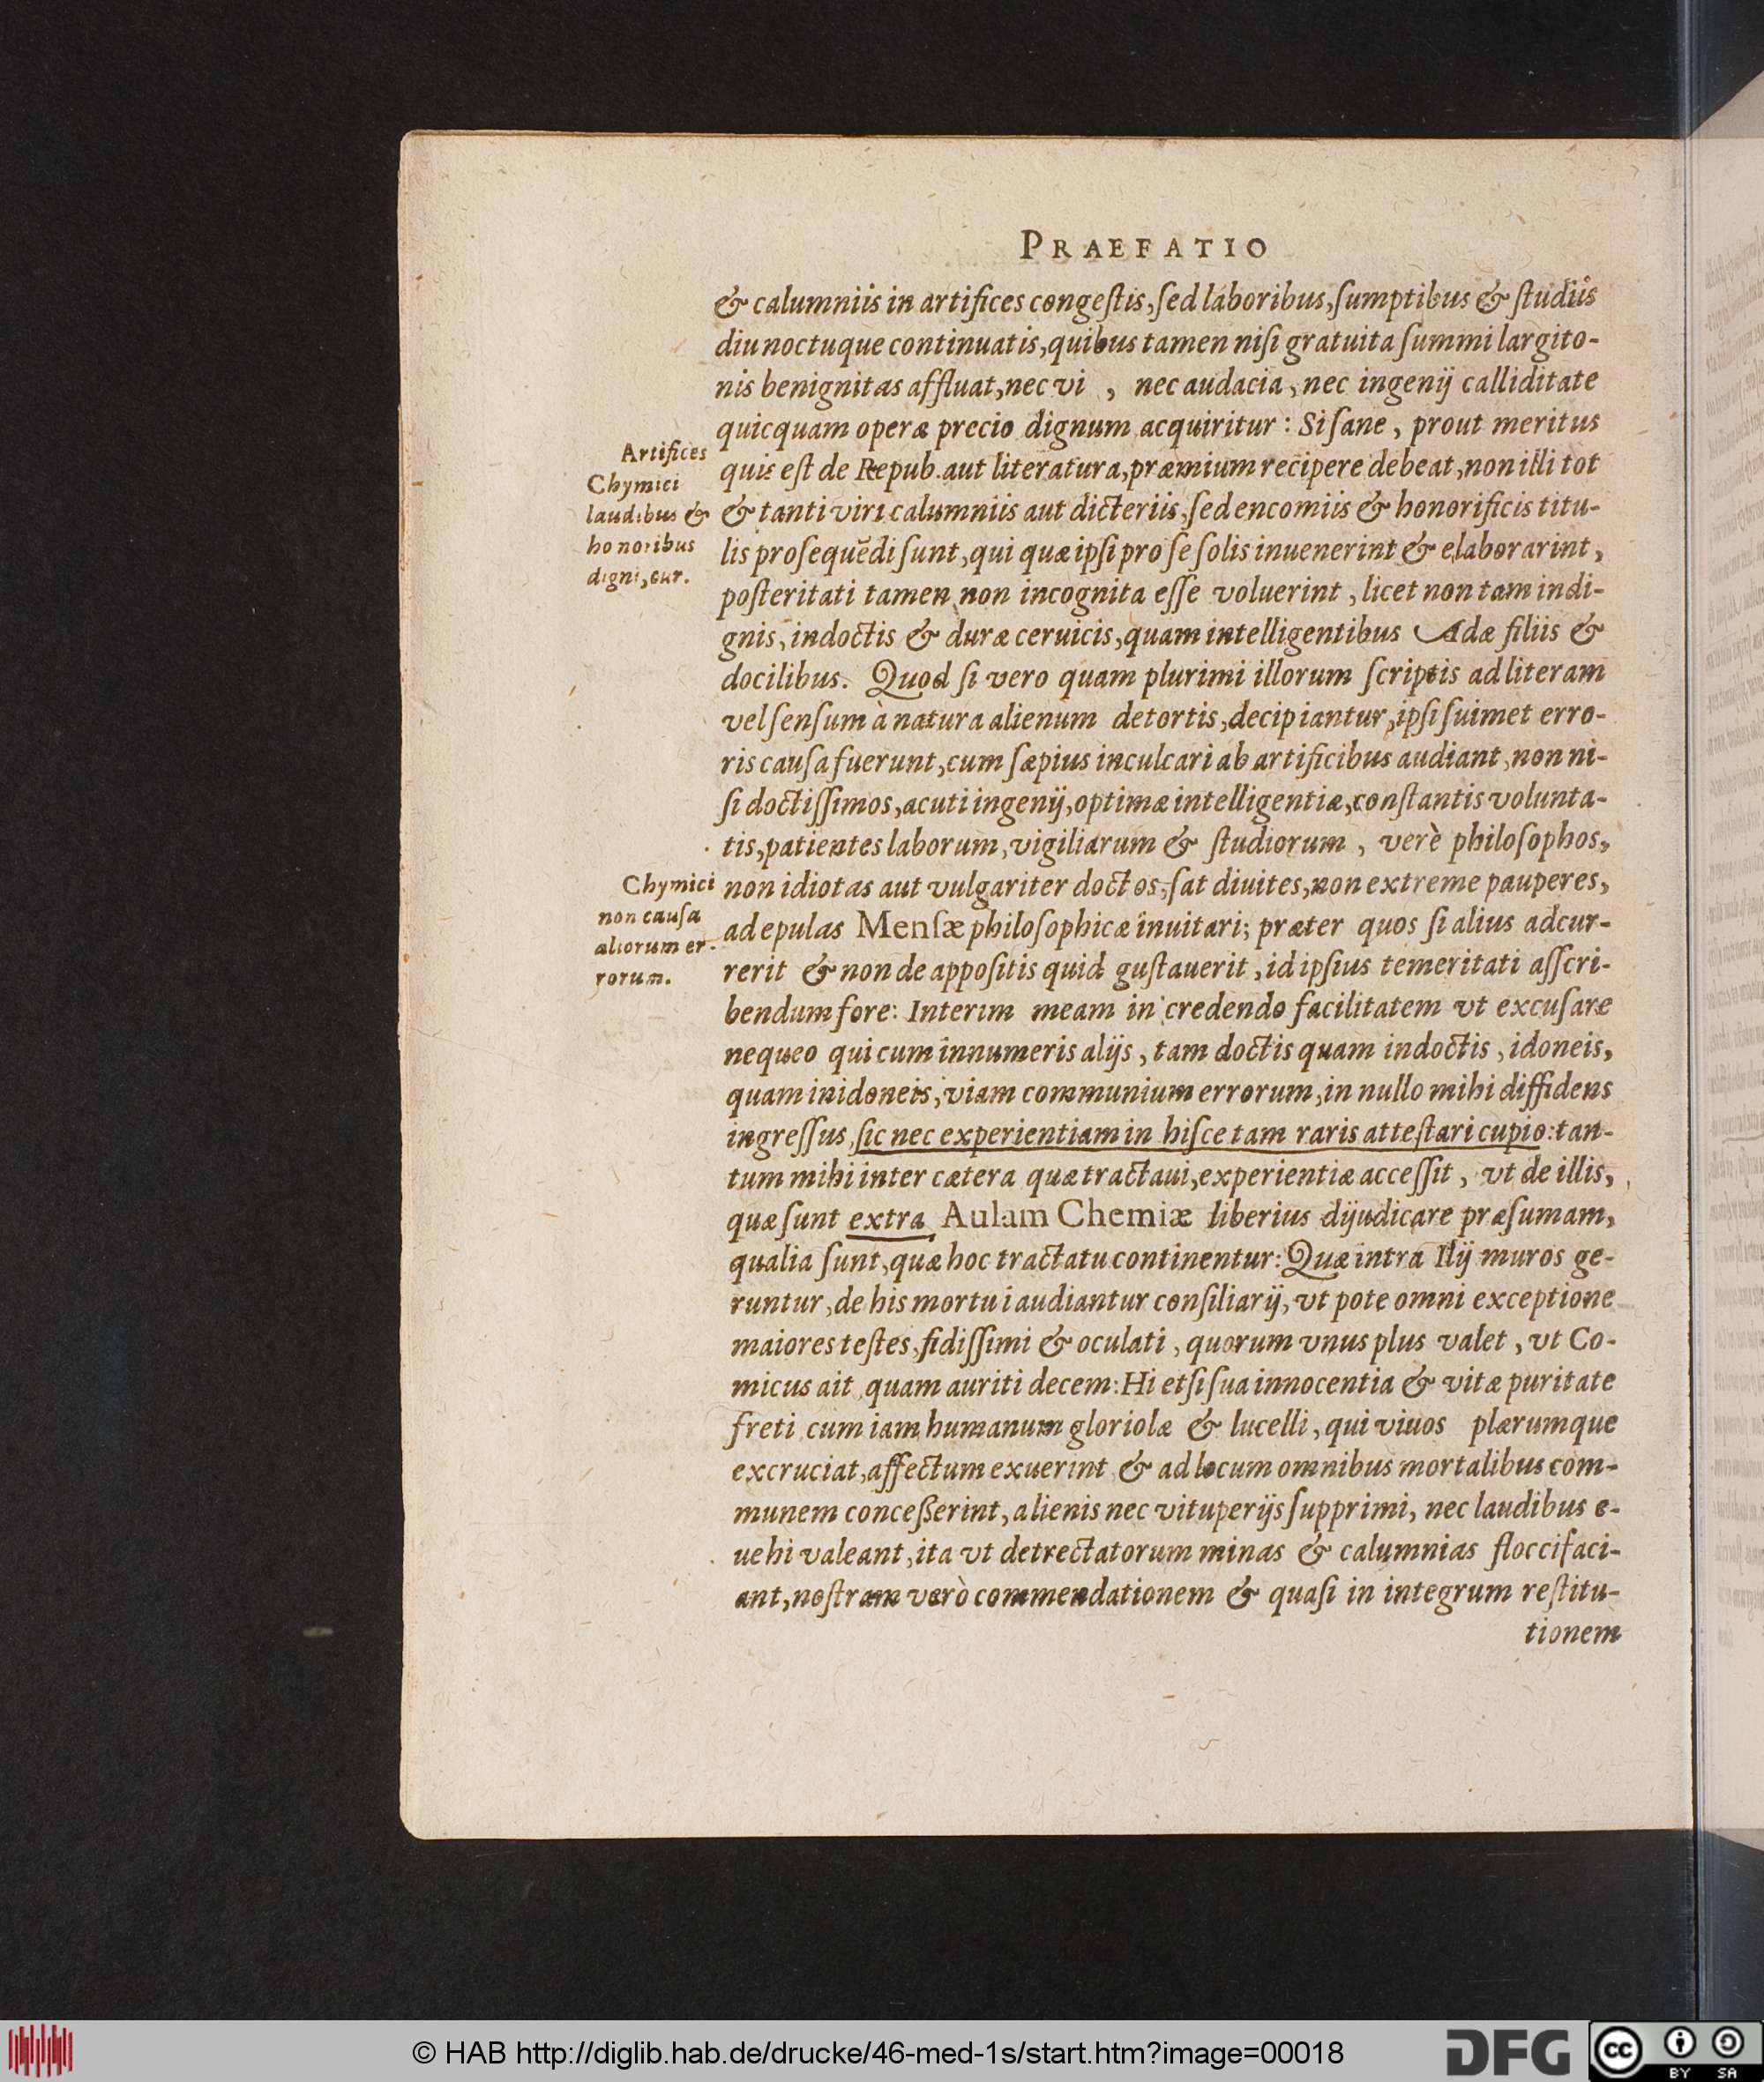 PRAEFATIO
& calumniis in artifices congeſtis, ſed laboribus, ſumptibus & ſtudiis
diu noctuque continuatis, quibus tamen niſi gratuita ſummi largito-
nis benignitas affluat, nec vi , nec audacia, nec ingenij calliditate
quicquam operæ precio dignum acquiritur : Si ſane, prout meritus
Artifices
Chymici
laudibus &
honoribus
digni, cur.
quis eſt de Repub. aut literatura, præmium recipere debeat, non illi tot
& tanti viri calumniis aut dicteriis, ſed encomiis & honorificis titu-
lis proſequẽdi ſunt, qui quæ ipſi pro ſe ſolis inuenerint & elaborarint,
poſteritati tamen non incognita eſſe voluerint, licet non tam indi-
gnis, indoctis & duræ ceruicis, quam intelligentibus Adæ filiis &
docilibus. Quod ſi vero quam plurimi illorum ſcriptis ad literam
vel ſenſum à natura alienum detortis, decipiantur, ipſi ſuimet erro-
ris cauſa fuerunt, cum ſæpius inculcari ab artificibus audiant, non ni-
ſi doctiſſimos, acuti ingenij, optimæ intelligentiæ, conſtantis volunta-
tis, patientes laborum, vigiliarum & ſtudiorum, verè philoſophos,
Chymici
non cauſa
aliorum er-
rorum.
non idiotas aut vulgariter doctos, ſat diuites, non extreme pauperes,
ad epulas Menſæ philoſophicæ inuitari; præter quos ſi alius adcur-
rerit & non de appoſitis quid guſtauerit, id ipſius temeritati aſſcri-
bendum fore: Interim meam in credendo facilitatem vt excuſare
nequeo qui cum innumeris alijs, tam doctis quam indoctis, idoneis,
quam inidoneis, viam communium errorum, in nullo mihi diffidens
ingreſſus, ſic nec experientiam in hiſce tam raris atteſtari cupio: tan-
tum mihi inter cætera quæ tractaui, experientiæ acceſſit, vt de illis,
quæ ſunt extra Aulam Chemiæ liberius dijudicare præſumam,
qualia ſunt, quæ hoc tractatu continentur: Quæ intra Ilij muros ge-
runtur, de his mortui audiantur conſiliarij, vt pote omni exceptione
maiores teſtes, fidiſſimi & oculati, quorum vnus plus valet, vt Co-
micus ait, quam auriti decem: Hi etſi ſua innocentia & vitæ puritate
freti cum iam humanum gloriolæ & lucelli, qui viuos plærumque
excruciat, affectum exuerint & ad locum omnibus mortalibus com-
munem conceßerint, alienis nec vituperijs ſupprimi, nec laudibus e-
uehi valeant, ita vt detrectatorum minas & calumnias floccifaci-
ant, noſtram verò commendationem & quaſi in integrum reſtitu-
tionem
© HAB http://diglib.hab.de/drucke/46-med-1s/start.htm?image=00018
DFG
cc BY SA